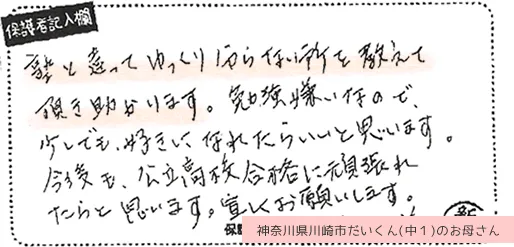 保護者記入欄
塾と違ってゆっくり解らない所を教えて
頂き助かります。勉強嫌いなので、
少しでも、好きに、なれたらいいと思います。
今後も、公立高校合格に頑張れ
たらと思います。宜しくお願いします。
神奈川県川崎市だいくん(中1)のお母さん